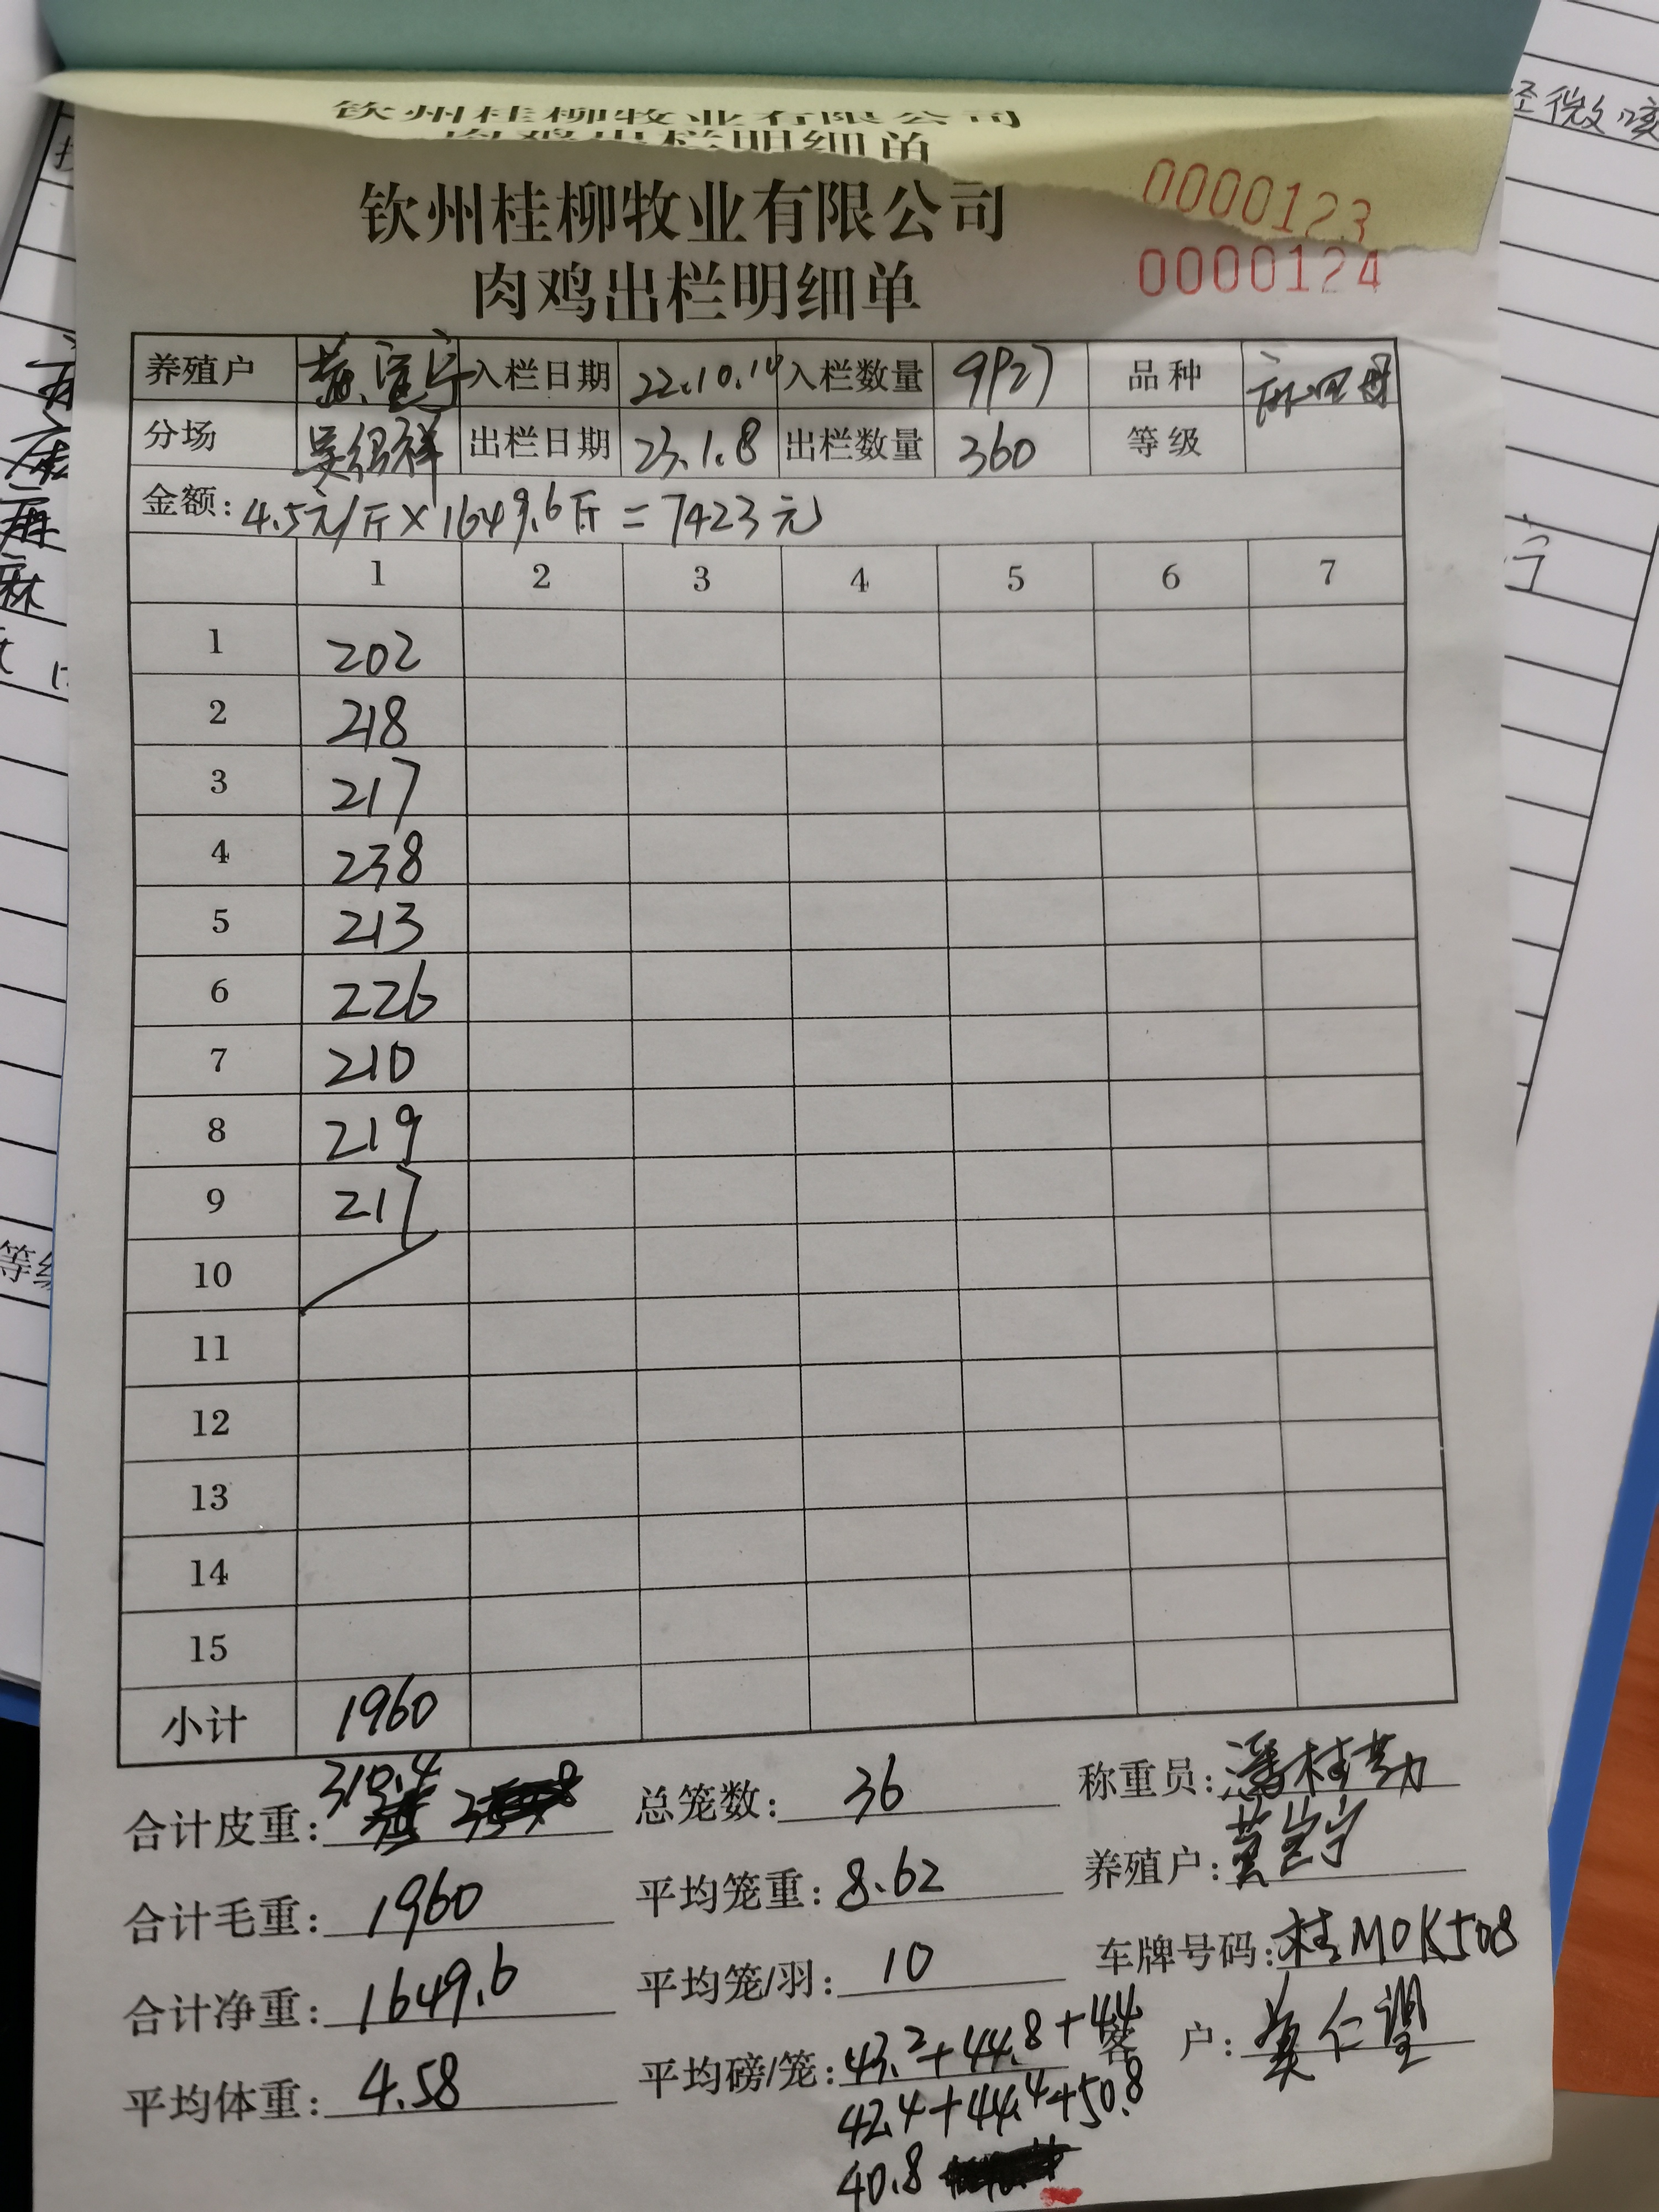 钦州桂柳牧业有限公司
肉鸡出栏明细单
0000123
钦州桂柳牧业有限公司
0000124
肉鸡出栏明细单
养殖户 入栏日期 22.10.14 入栏数量 9927 品种
分场 出栏日期 23.1.8 出栏数量 360 等级
金额: 4.5元/斤×1649.6斤=7423元
1 2 3 4 5 6 7
1 202
2 218
3 217
4 238
5 213
6 226
7 210
8 219
9 217
10
11
12
13
14
15
小计 1960
合计皮重: 310.4 总笼数: 36 称重员:
合计毛重: 1960 平均笼重: 8.62 养殖户:
合计净重: 1649.6 平均笼/羽: 10 车牌号码: 桂M0K508
平均体重: 4.58 平均磅/笼: 43.2+44.8+44 客户:
42.4+44.4+50.8
40.8